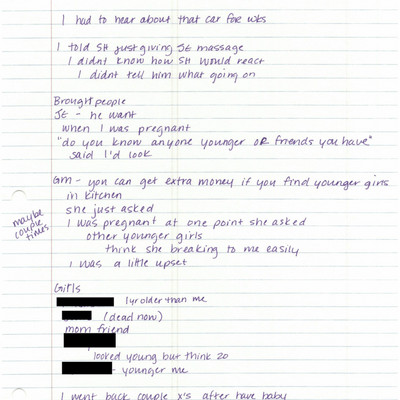 I had to hear about that car for wks
I told SH just giving JE massage
I didnt know how SH would react
I didnt tell him what going on
Brought people
JE - he want
when I was pregnant
"do you know anyone younger OR friends you have"
said I'd look
GM - you can get extra money if you find younger girls
in kitchen
she just asked
maybe couple times
I was pregnant at one point she asked
other younger girls
think she breaking to me easily
I was a little upset
Girls
1yr older than me
(dead now)
mom friend
looked young but think 20
younger me
I went back couple x's after have baby